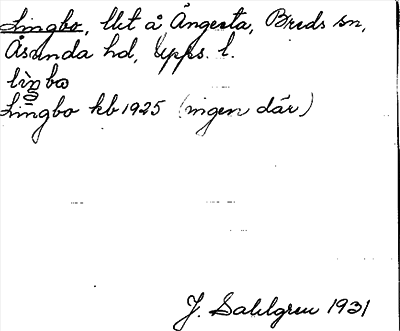 Lingbo, lht å Ängesta, Breds sn,
Åsunda hd, Upps. l.
Lingbo kb 1925 (ingen där)
J. Sahlgren 1931